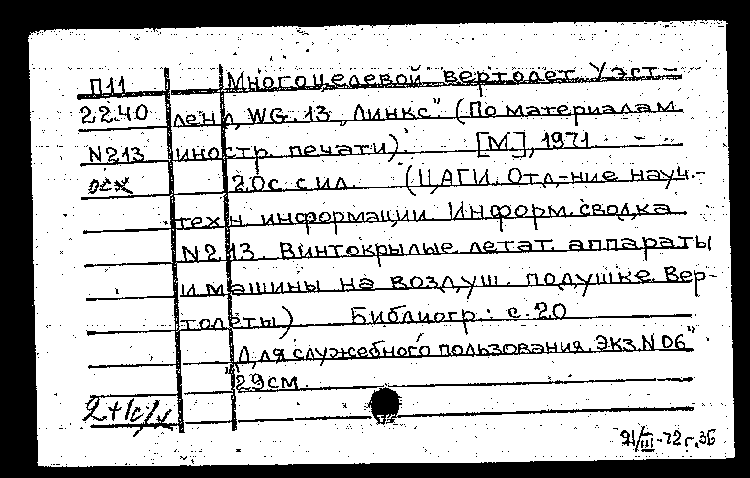 П11 Многоцелевой вертолет Уэст-
2240 ленд WG.13 „Линкс" (По материалам
N213 иностр. печати). [М.], 1971
осх 20с. с ил. (ЦАГИ. Отд-ние науч.-
техн. информации. Информ. сводка
N213. Винтокрылые летат. аппараты
и машины на воздуш. подушке. Вер-
толеты) Библиогр.: с. 20
"Для служебного пользования. Экз. N 06"
29см.
21/III-72г. 3Б